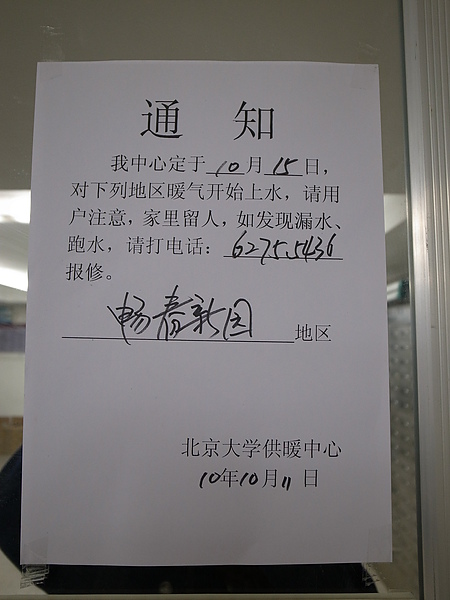 通 知
我中心定于 10 月 15 日，
对下列地区暖气开始上水，请用
户注意，家里留人，如发现漏水、
跑水，请打电话：62755436
报修。
畅春新园 地区
北京大学供暖中心
10年10月11日